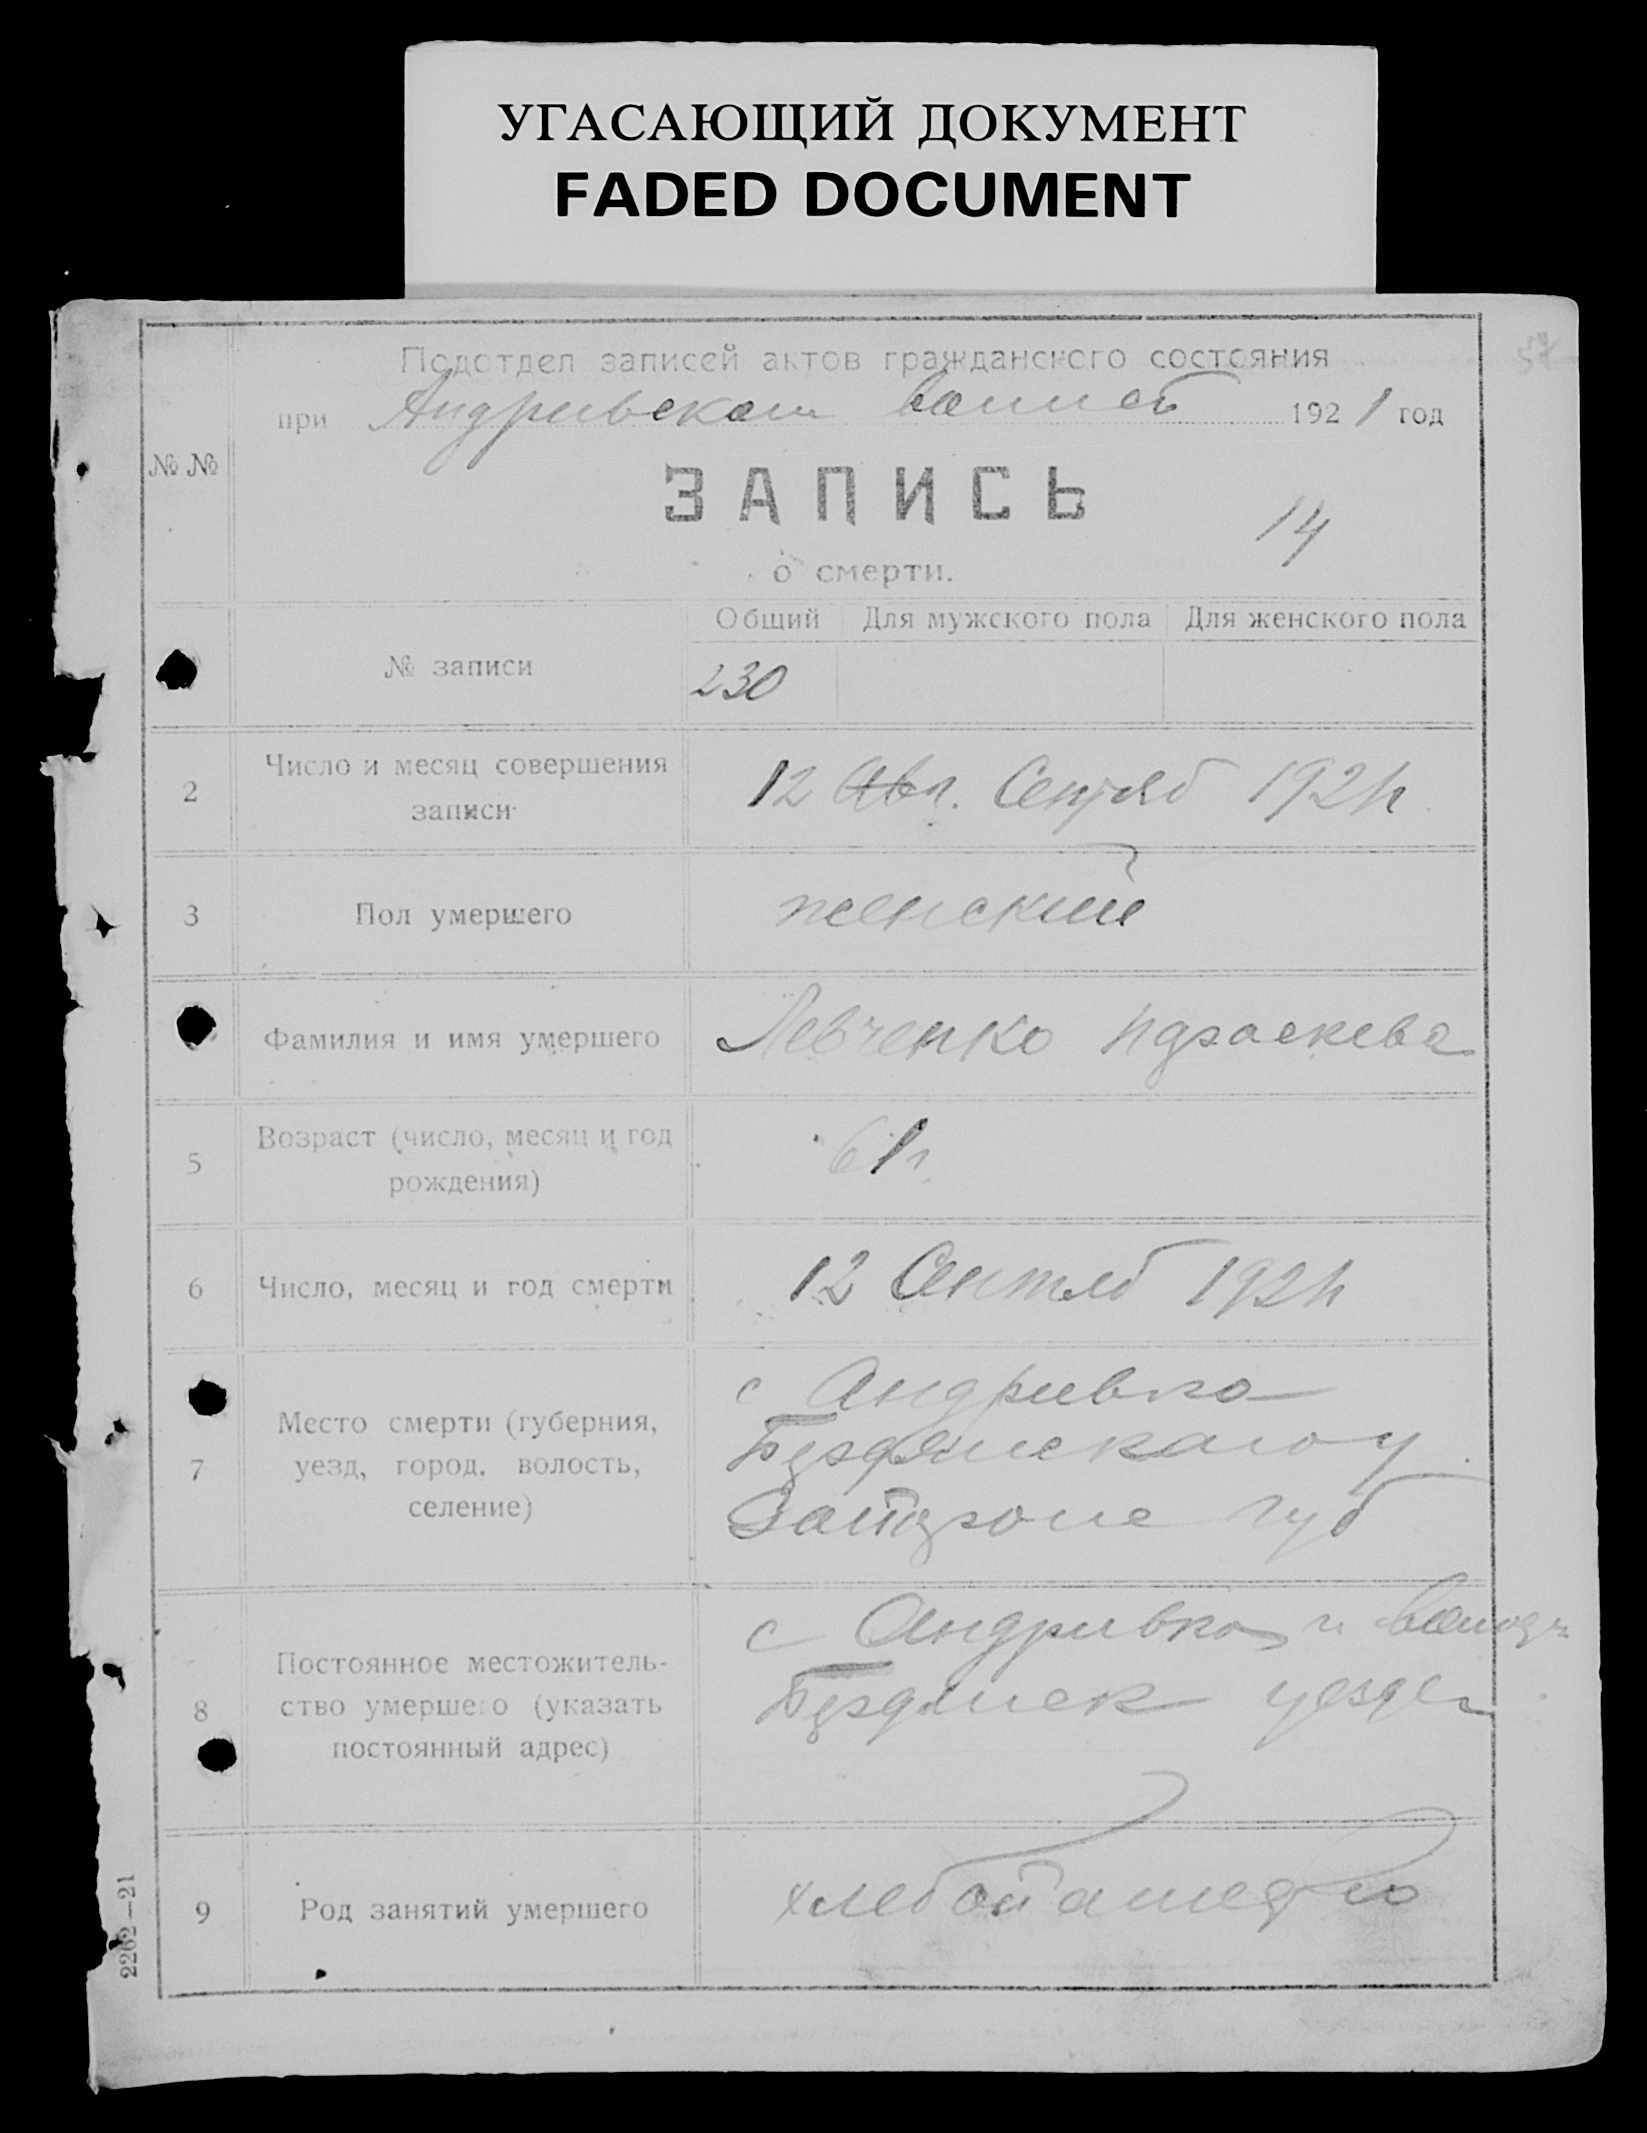 УГАСАЮЩИЙ ДОКУМЕНТ
FADED DOCUMENT
57
Подотдел записей актов гражданского состояния
при Андривском 1921 год
№ №
ЗАПИСЬ
14
о смерти.
Общий Для мужского пола Для женского пола
№ записи 230
2 Число и месяц совершения записи 12 Авг. Сентяб 1921 г
3 Пол умершего женский
Фамилия и имя умершего Левченко Параскева
5 Возраст (число, месяц и год рождения) 61 г
6 Число, месяц и год смерти 12 Сентяб 1921 г
7 Место смерти (губерния, уезд, город, волость, селение)
с Андривка
Бердянскаго у
губ
8 Постоянное местожительство умершего (указать постоянный адрес)
с Андривка
Бердянск уезда
9 Род занятий умершего хлебопашество
2262—21